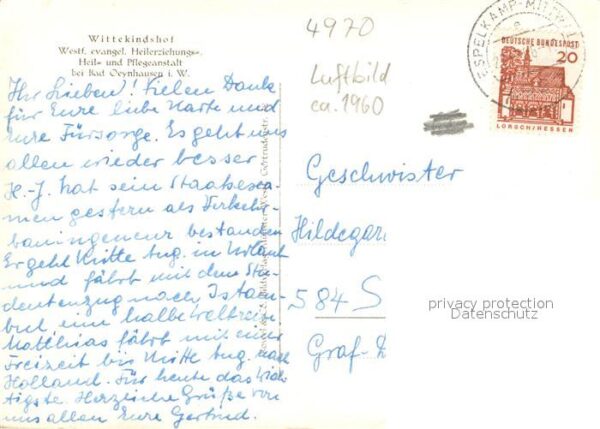 Wittekindshof
Westf. evangel. Heilerziehungs-,
Heil- und Pflegeanstalt
bei Bad Oeynhausen i. W.
Ihr Lieben! Vielen Dank
für Eure liebe Karte und
Eure Fürsorge. Es geht uns
allen wieder besser
H.-J. hat sein Staatsexa-
men gestern als Verkehrs-
bauingenieur bestanden
Er geht Mitte Aug. in Urlaub
und fährt mit dem Stu-
dentenzug nach Istan-
bul, eine halbe Weltreise
Matthias fährt mit einer
Freizeit bis Mitte Aug. nach
Holland. Für heute das Wich-
tigste. Herzliche Grüße von
uns allen Eure Gertrud.
4970
Luftbild
ca. 1960
ESPELKAMP-MITTW
DEUTSCHE BUNDESPOST
20
LORSCH/HESSEN
Geschwister
Hildegar
584 S
Graf-
privacy protection
Datenschutz